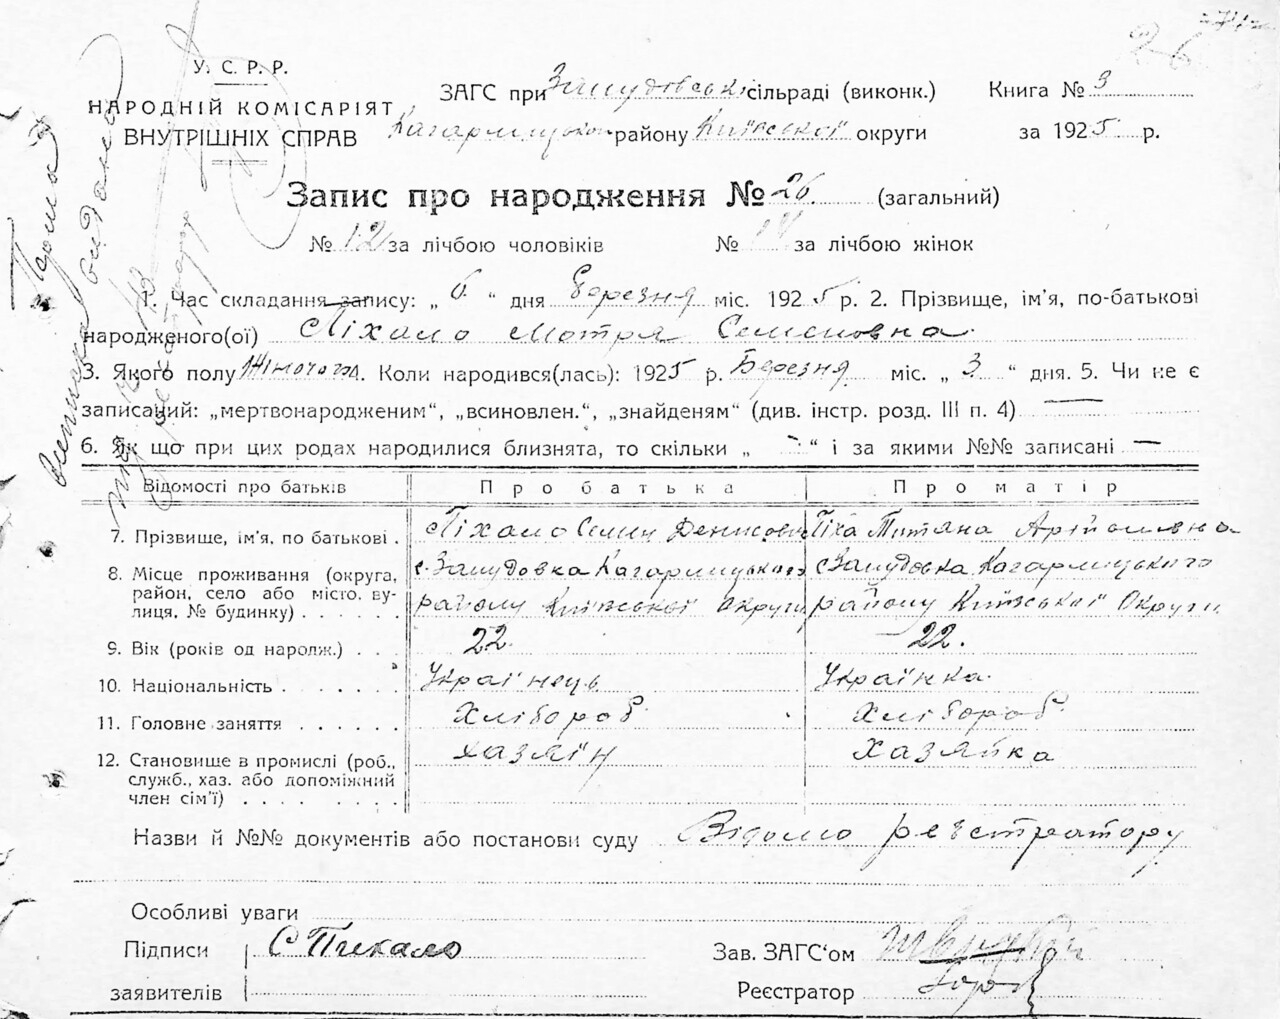 26
У. С. Р. Р.
НАРОДНІЙ КОМІСАРІЯТ
ВНУТРІШНІХ СПРАВ
ЗАГС при сільраді (виконк.) Книга № 3
Кагарлицьком району Київської округи за 1925 р.
Запис про народження № 26. (загальний)
№ 12 за лічбою чоловіків № 14 за лічбою жінок
1. Час складання запису: „ 6 “ дня Березня міс. 1925 р. 2. Прізвище, ім'я, по-батькові
народженого(ої) Піхало Мотря Семеновна
3. Якого полу Жіночого. Коли народився(лась): 1925 р. Березня міс. „ 3 “ дня. 5. Чи не є
записаний: „мертвонародженим“, „всиновлен.“, „знайденям“ (див. інстр. розд. III п. 4) —
6. Як що при цих родах народилися близнята, то скільки „ - “ і за якими №№ записані —
Відомості про батьків Про батька Про матір
7. Прізвище, ім'я, по батькові . Піхало Семен Денисови Піха Титяна
8. Місце проживання (округа, район, село або місто, вулиця, № будинку) . . . . . .
с. Кагарлицького району Київської округи
с. Кагарлицького району Київської Округи
9. Вік (років од народж.) . . . 22. 22.
10. Національність . . . . . . . Українець Українка.
11. Головне заняття . . . . . . Хлібороб. Хлібороб.
12. Становище в промислі (роб., Хазяїн Хазяйка
служб., хаз. або допоміжний
член сім'ї) . . . . . . . .
Назви й №№ документів або постанови суду Відомо реєстратору
Особливі уваги
Підписи С Пихало Зав. ЗАГС‘ом
заявителів Реєстратор